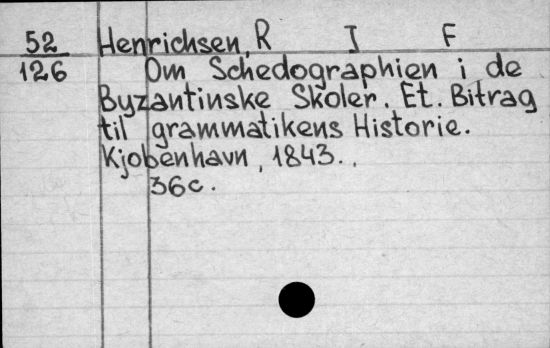 52 Henrichsen, R I F
126 Om Schedographien i de
Byzantinske Skoler. Et. Bitrag
til grammatikens Historie.
Kjobenhavn, 1843..
36c.